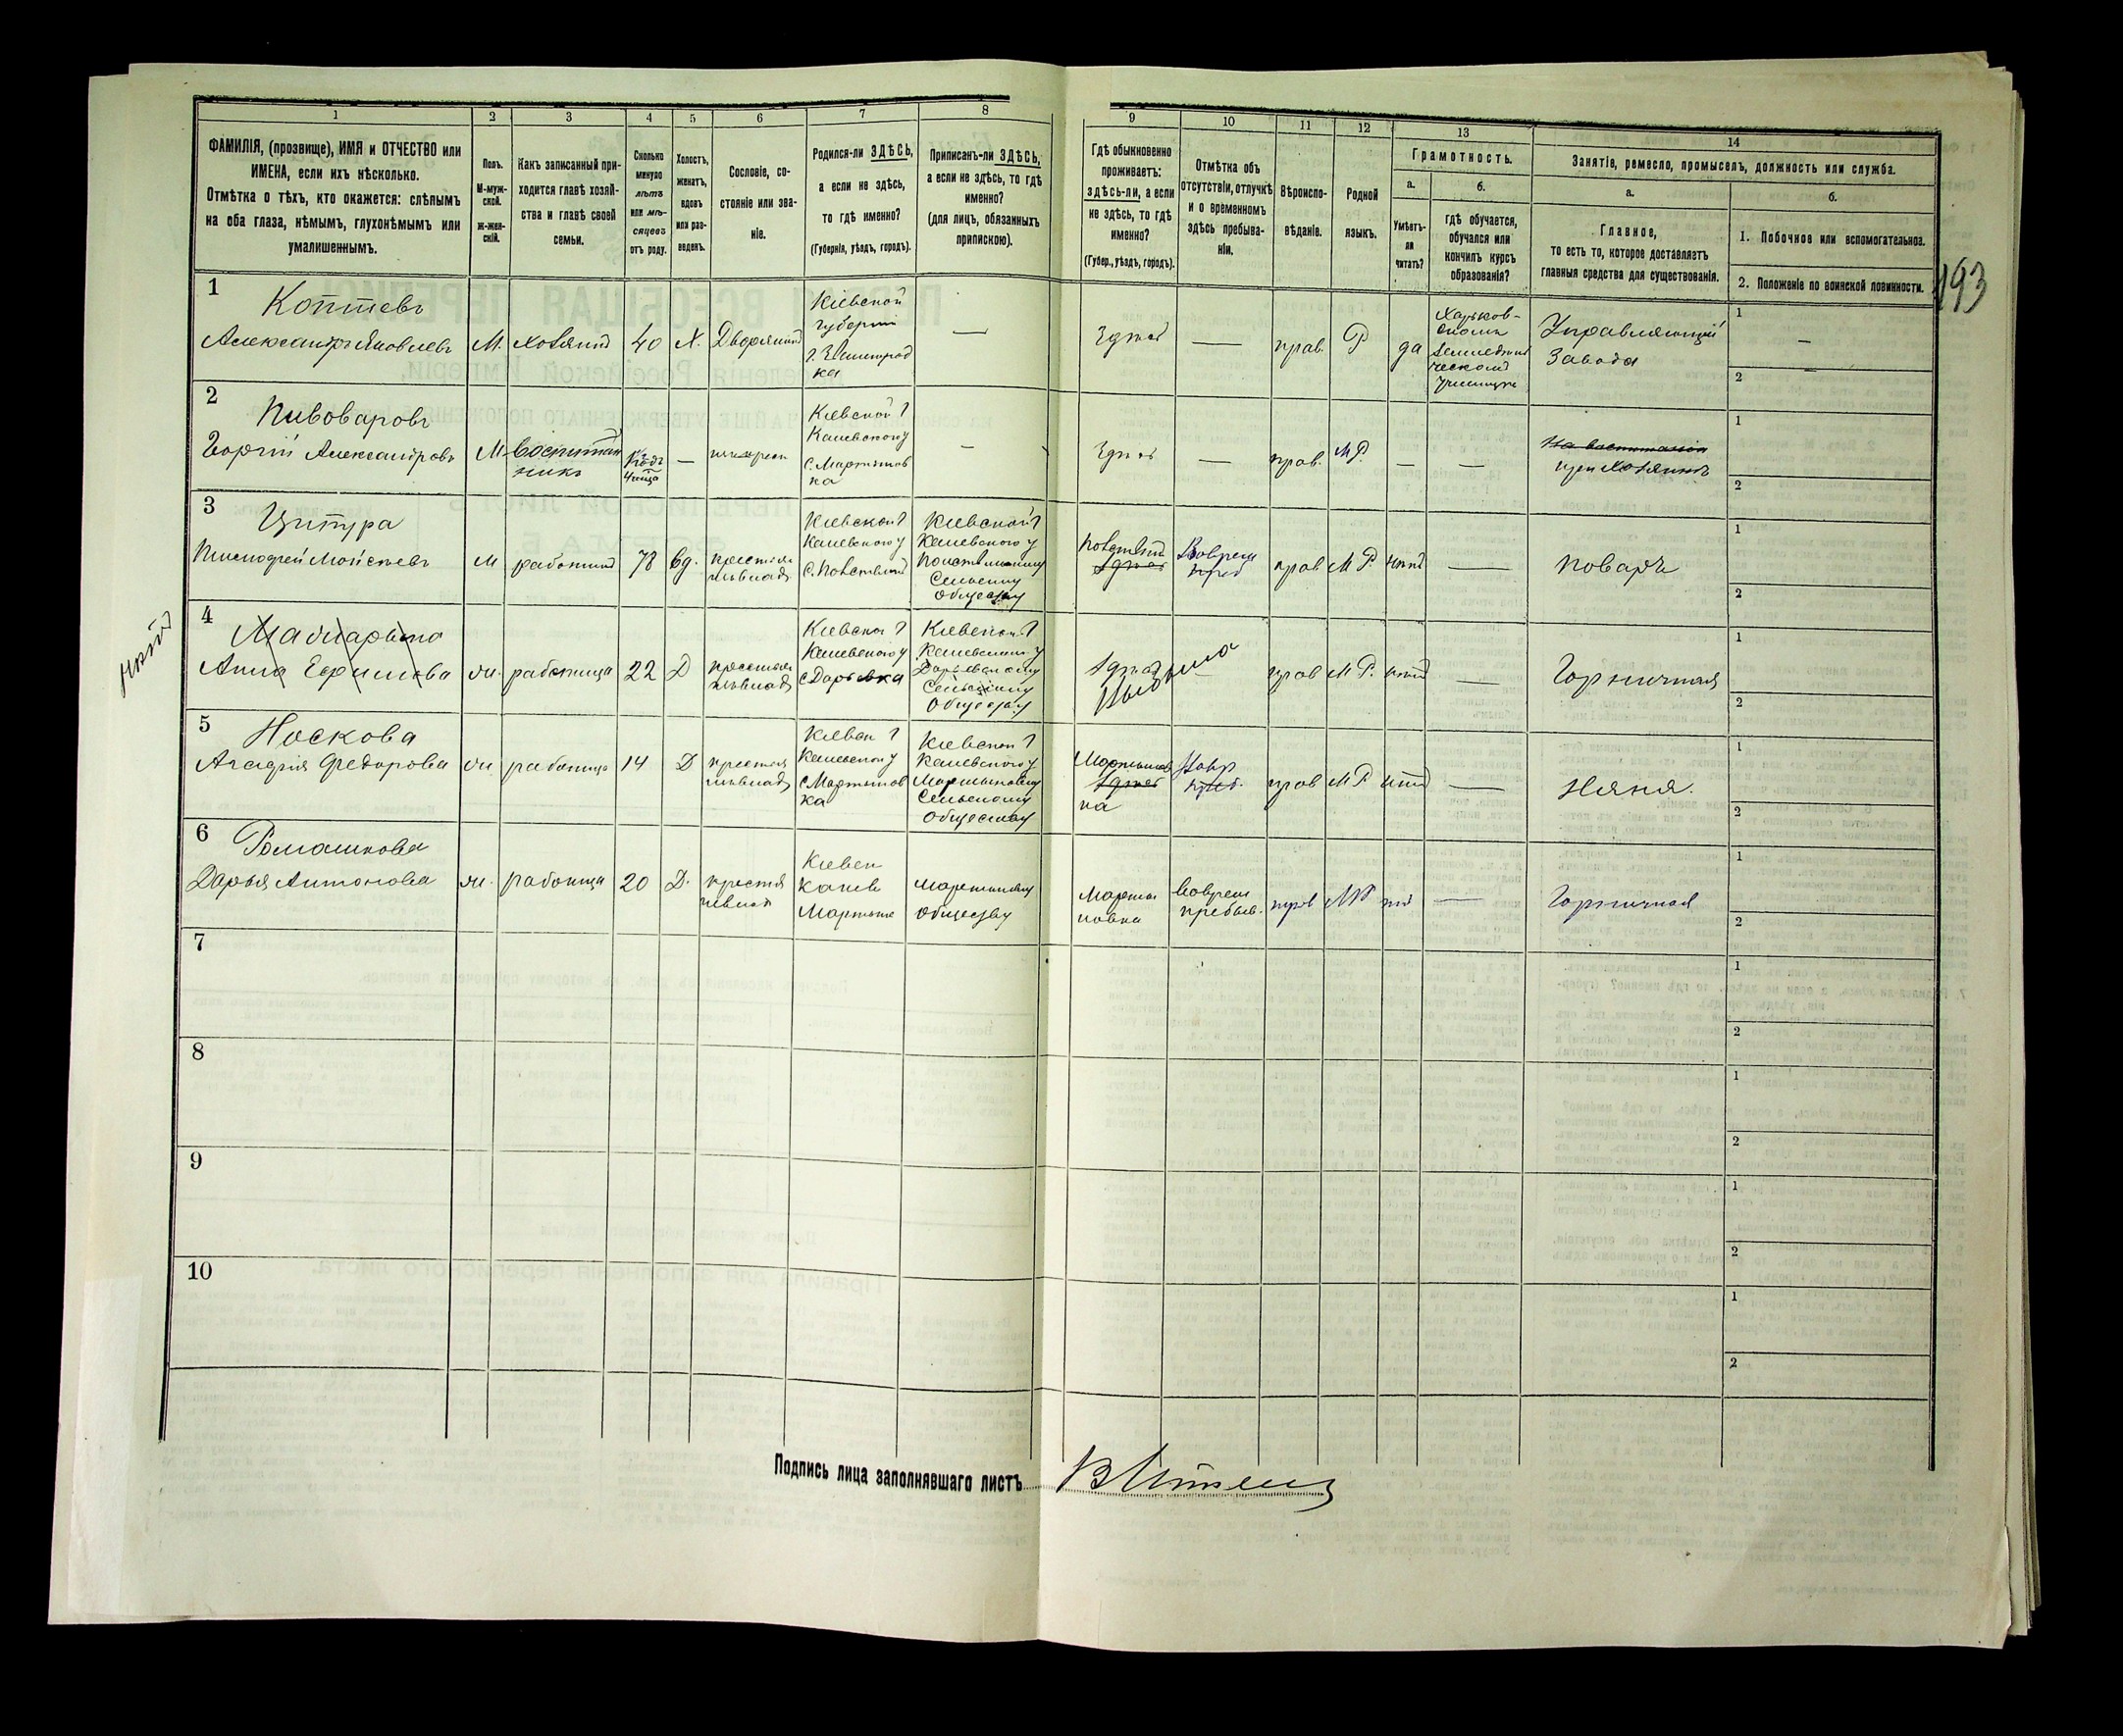 1 2 3 4 5 6 7 8 9 10 11 12 13 14
ФАМИЛІЯ, (прозвище), ИМЯ и ОТЧЕСТВО или
ИМЕНА, если ихъ нѣсколько.
Отмѣтка о тѣхъ, кто окажется: слѣпымъ
на оба глаза, нѣмымъ, глухонѣмымъ или
умалишеннымъ.
Полъ.
М-муж-
ской.
Ж-жен-
скій.
Какъ записанный при-
ходится главѣ хозяй-
ства и главѣ своей
семьи.
Сколько
минуло
лѣтъ
или мѣ-
сяцевъ
отъ роду.
Холостъ,
женатъ,
вдовъ
или раз-
веденъ.
Сословіе, со-
стояніе или зва-
ніе.
Родился-ли ЗДѢСЬ,
а если не здѣсь,
то гдѣ именно?
(Губернія, уѣздъ, городъ).
Приписанъ-ли ЗДѢСЬ,
а если не здѣсь, то гдѣ
именно?
(для лицъ, обязанныхъ
припискою).
Гдѣ обыкновенно
проживаетъ:
здѣсь-ли, а если
не здѣсь, то гдѣ
именно?
(Губер., уѣздъ, городъ).
Отмѣтка объ
отсутствіи, отлучкѣ
и о временномъ
здѣсь пребыва-
ніи.
Вѣроиспо-
вѣданіе.
Родной
языкъ.
Грамотность.
а.
Умѣетъ-
ли
читать?
б.
гдѣ обучается,
обучался или
кончилъ курсъ
образованія?
Занятіе, ремесло, промыселъ, должность или служба.
а.
Главное,
то есть то, которое доставляетъ
главныя средства для существованія.
б.
1. Побочное или вспомогательное.
2. Положеніе по воинской повинности.
193
1
Коптевъ
Александръ Яковлевъ
М.
хозяинъ
40
Х.
Дворянинъ
Кіевской
губерніи
г. Звенигород
ка
—
Здѣсь
—
прав.
Р
да
Харьков-
скомъ
Земледѣль
ческомъ
училищѣ
Управляющій
Завода
1
—
2
—
2
Пивоваровъ
Георгій Александровъ
М
воспитан
никъ
—
Кіевской г
Каневского у
с. Мартынов
ка
—
Здѣсь
—
прав.
М Р.
—
—
На воспитаніи
при хозяинѣ
1
2
3
Цитура
Моисеевъ
м
работник
78
вд.
крестья
Кіевской г
Каневского у
Кіевской г
Каневского у
Сельскому
Обществу
Здѣсь
Воврем
преб
прав
М Р.
нѣтъ
—
поваръ
1
2
4
Анна Ефимова
ж.
работница
22
Д
крестья
Кіевской г
Каневского у
с Дарьевка
Кіевской г
Каневского у
Дарьевскому
Сельскому
Обществу
Здѣсь
Выбыла
прав
М Р.
нѣтъ
—
Горничная
1
2
нѣтъ
5
Носкова
Агафія Федорова
ж
работница
14
Д
крестья
Кіевск г
Каневского у
с Мартынов
ка
Кіевской г
Каневского у
Мартыновскому
Сельскому
Обществу
Мартынов
Здѣсь
ка
преб.
прав
М Р
нѣтъ
—
Няня.
1
2
6
Ромашкова
Дарья Антонова
ж.
работница
20
Д.
крестья
Кіевск
Канев
Мартын
Мартыновскому
обществу
Марты
новка
Воврем
пребыв.
прав
МР
нѣ
—
Горничная
1
2
7
1
2
8
1
2
9
1
2
10
1
2
Подпись лица заполнявшаго листъ